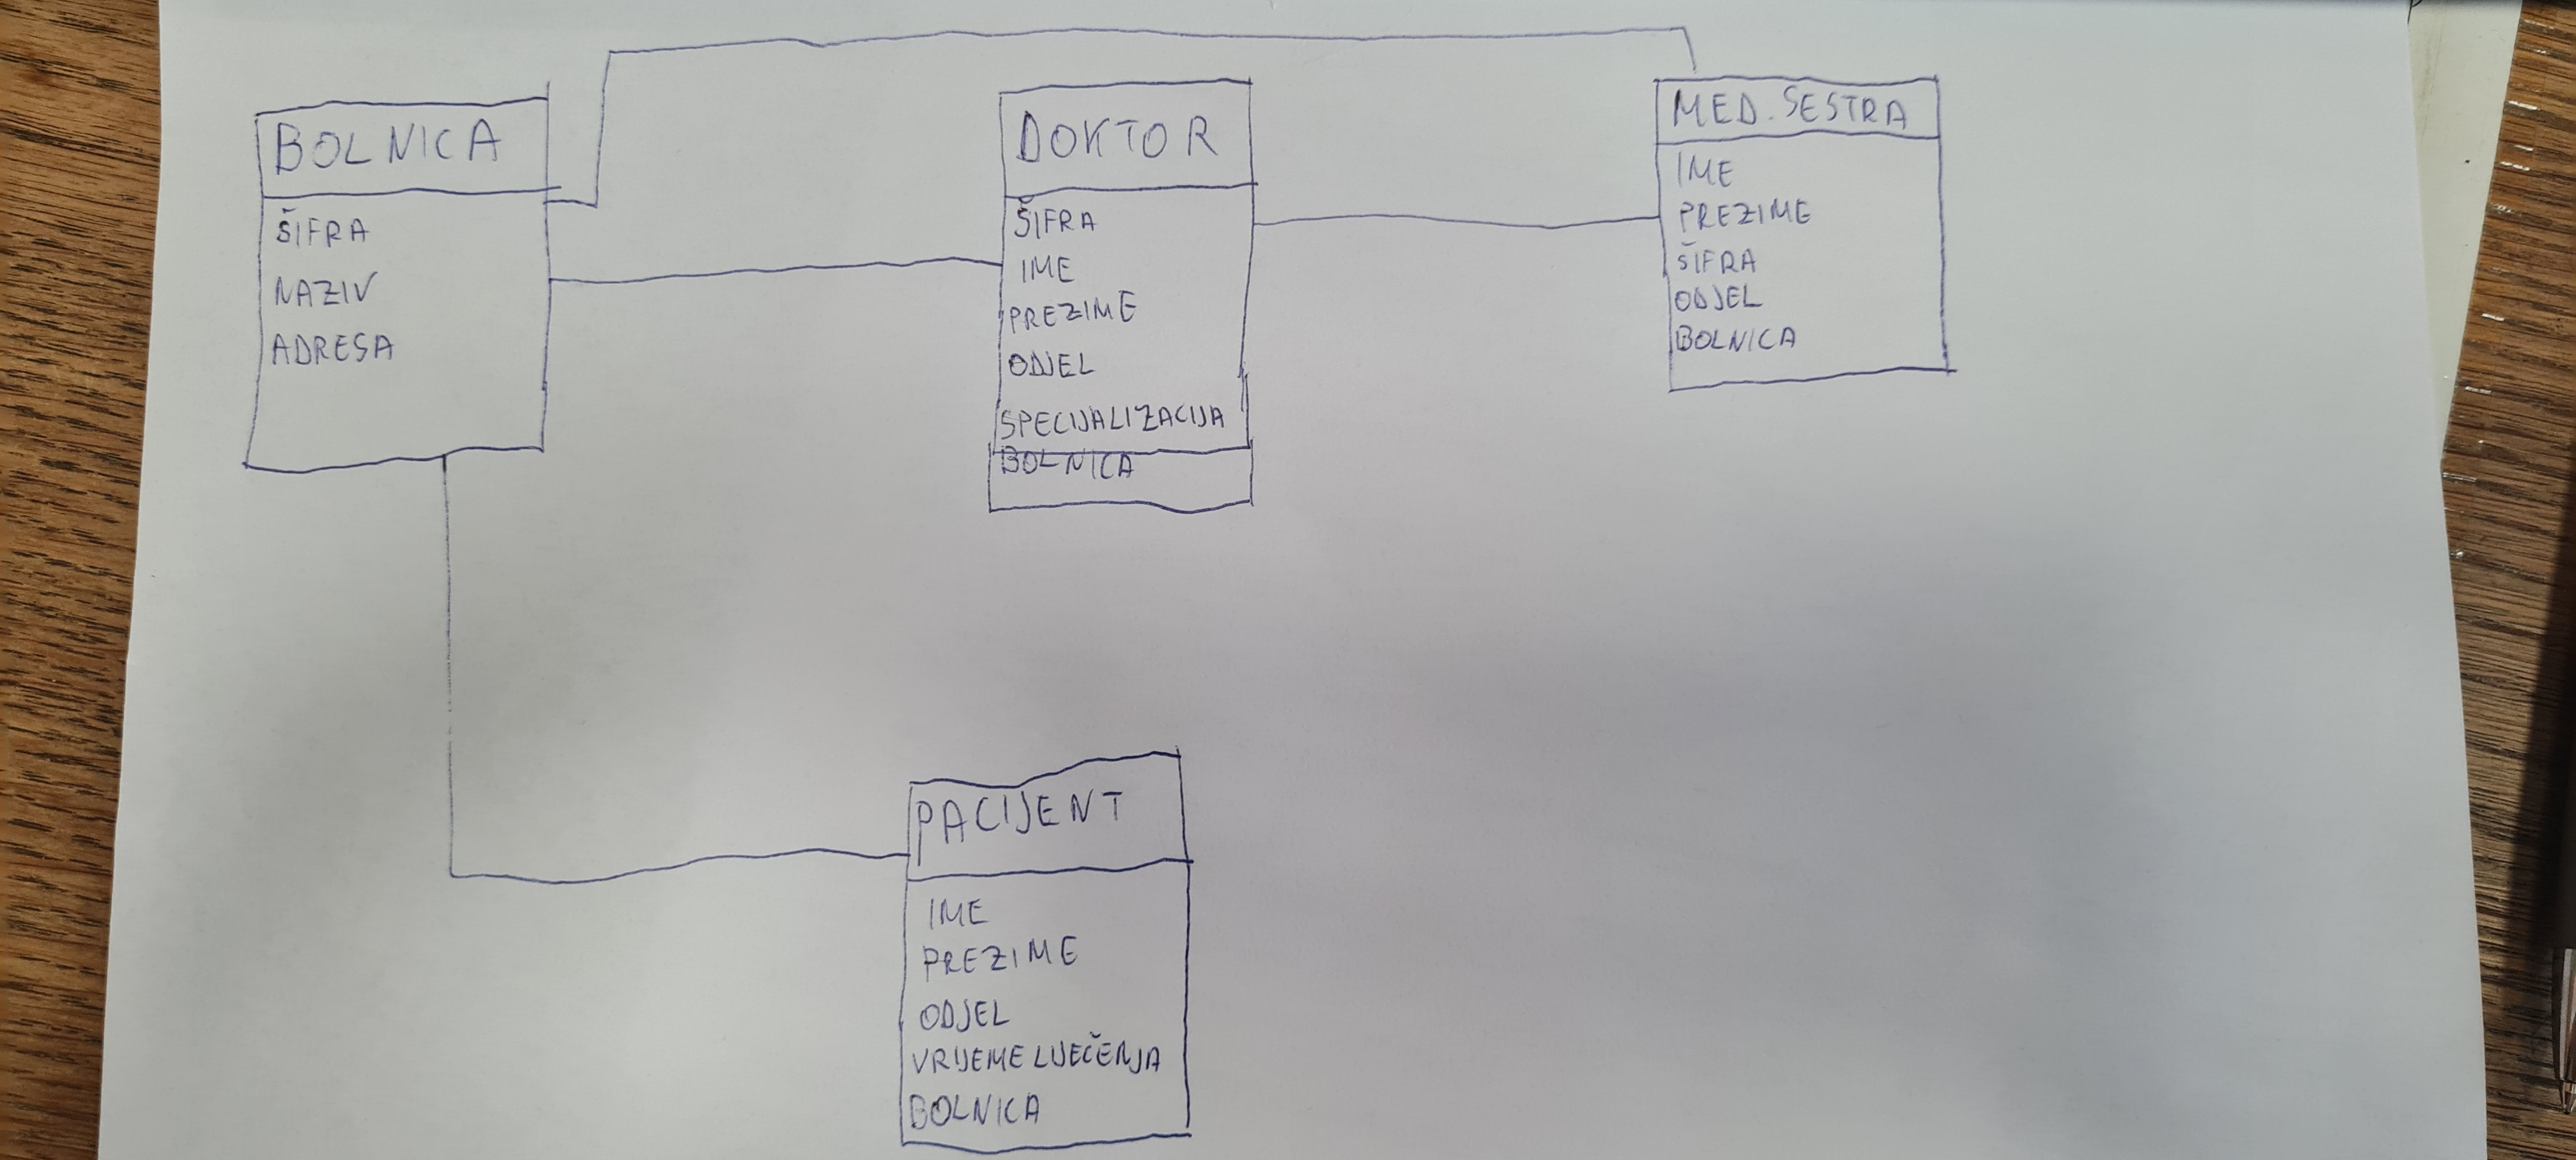 BOLNICA
ŠIFRA
NAZIV
ADRESA
DOKTOR
ŠIFRA
IME
PREZIME
ODJEL
SPECIJALIZACIJA
BOLNICA
MED. SESTRA
IME
PREZIME
ŠIFRA
ODJEL
BOLNICA
PACIJENT
IME
PREZIME
ODJEL
VRIJEME LIJEČENJA
BOLNICA